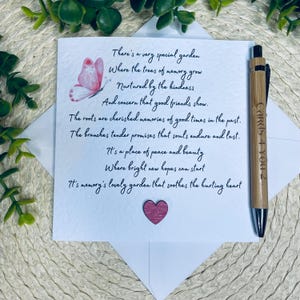 There's a very special garden
Where the trees of memory grow
Nurtured by the kindness
And concern that good friends show.
The roots are cherished memories of good times in the past.
The branches tender promises that souls endure and last.
It's a place of peace and beauty
Where bright new hopes can start
It's memory's lovely garden that soothes the hurting heart